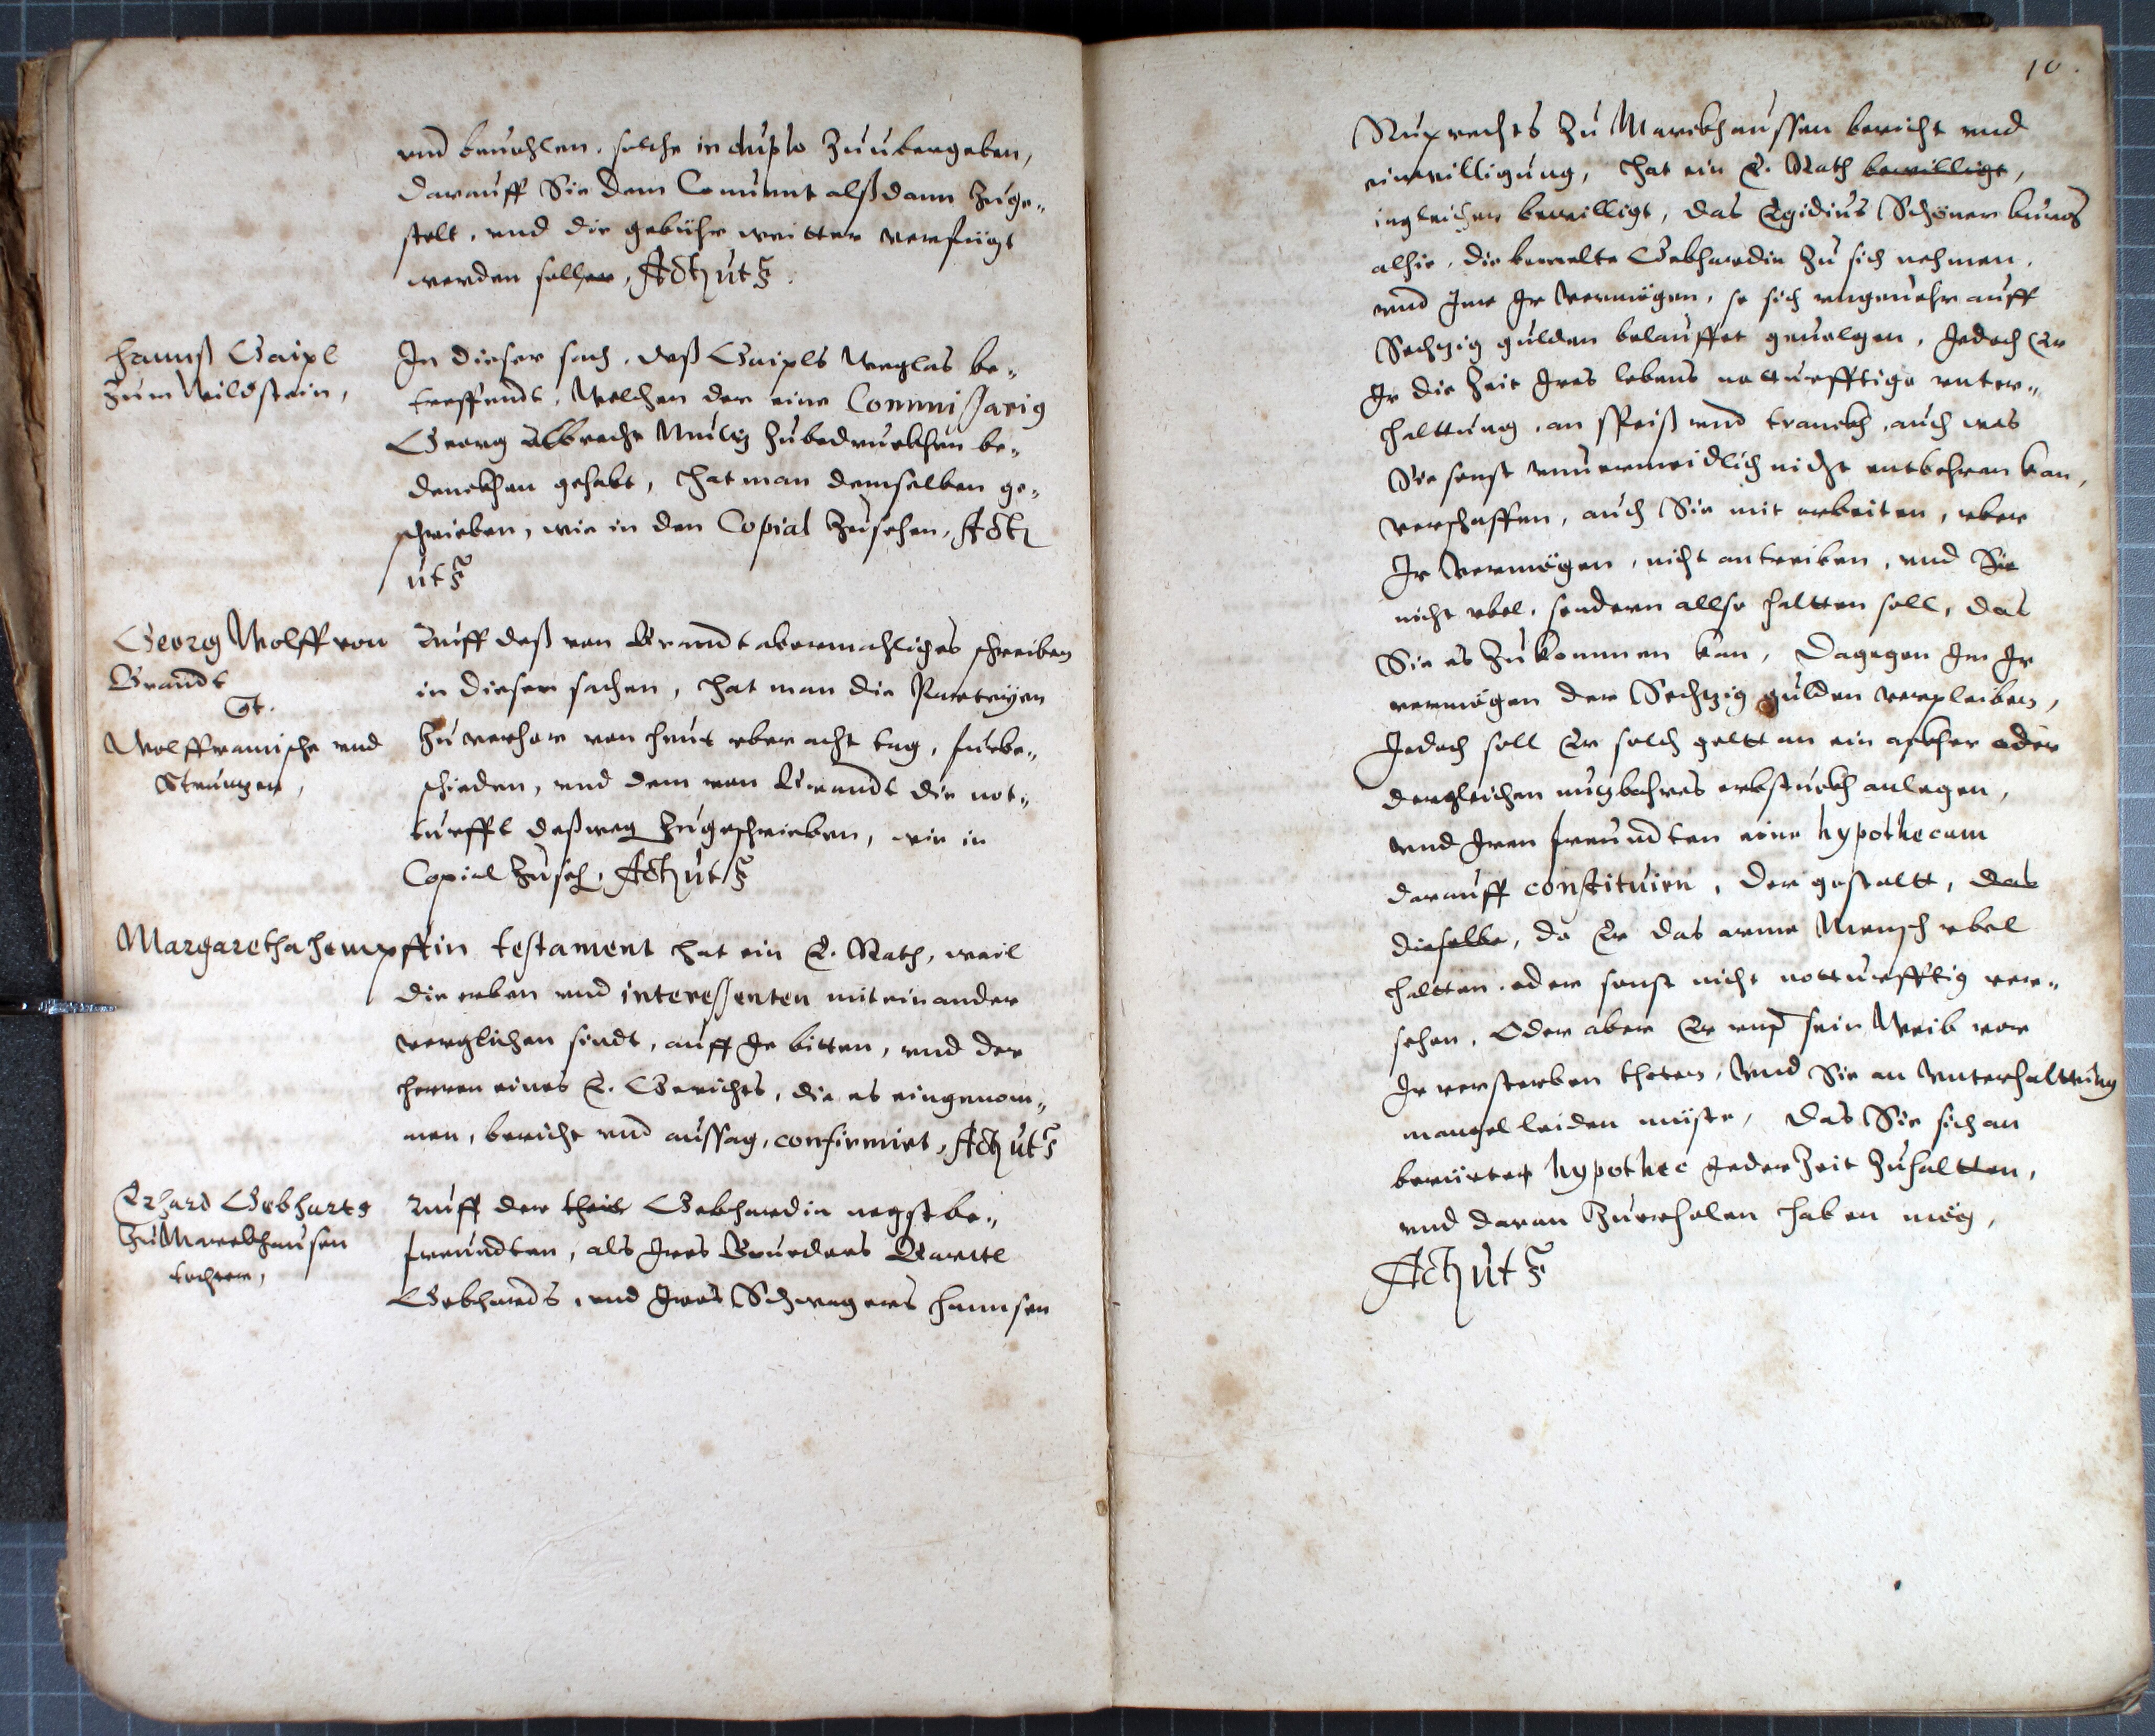 vnd beuohlen, solche in duplo Zuubergeben,
darauff Sie dem Conuent alßdann Zuge„
stelt, vnd die gebühr weitter verfügt
werden sollen, Actum ut s.
Hannß Gaipl
Zum Wildstein,
In dieser sach, deß Gaipls Verglas be„
treffendt, Welchen der eine Commissarig
Georg Albrecht Zubedruckhen be„
denckhen gehabt, hat man demselben ge„
schrieben, wie in den Copial Zusehen, Actum
ut s.
Georg Wolff von
Brandt
Ct.
Wolfframische vnd
Strunzen,
Auff deß von Brandt abermahliges schreiben
in dieser sachen, hat man die Parteyen
Zu verhor von heut vber acht tag, furbe„
schieden, vnd dem von Brandt die not„
turfft deßweg Zugeschrieben, wie in
Copial Zuseh, Actum ut s.
Margaretha Hempfftin testament hat ein E. Rath, weil
die erben vnd interessenten miteinander
verglichen sindt, auff Ir bitten, vnd der
herren eines E. Gerichts, die es eingenom„
men, bericht vnd aussag, confirmirt, Actum ut s.
Erhard Gebharts
Zu Marckhausen
tochter,
Auff der theil Gebhardin negst be„
freundten, als Ires Bruders Bartl
Gebhards, vnd Ires Schwagers Hannsen
10.
Ruprechts Zu Marckhaussen bericht vnd
einwilligung, hat ein E. Rath bewilligt,
ingleichen bewilligt, das Egidius Schöner burgs
alhie, die bemelte Gebhardin Zu sich nehmen,
vnd Ime Ir vermögen, so sich vngeuehr auff
Sechzig gulden belauffet geuolgen, Jedoch Er
Ir die Zeit Ires lebens notturfftige vnter„
halttung, an speiß vnd tranckh, auch was
Sie sonst vnuermeidlich nicht entbehren kan,
verschaffen, auch Sie mit arbeiten, vber
Ir vermögen, nicht antreiben, vnd Sie
nicht vbel, sondern allso haltten soll, das
Sie es Zukommen kan, Dagegen Im Ir
vermögen der Sechzig gulden verpleiben,
Jedoch soll Er solch geltt an ein ackher oder
dergleichen nuzbahres erbstuckh anlegen,
vnd Iren freundten eine hypothecam
darauff constituirn, der gestaltt, das
dieselbe, da Er das arme Mensch vbel
haltten, oder sonst nicht notturfftig ver„
sehen, Oder aber Er vnd sein Weib vor
Ir versterben theten, Vnd Sie an Vnterhalttung
mangel leiden müste, Das Sie sich an
berürter hypothec Jeder Zeit Zuhaltten,
vnd daran Zuerholen haben mög,
Actum ut s.